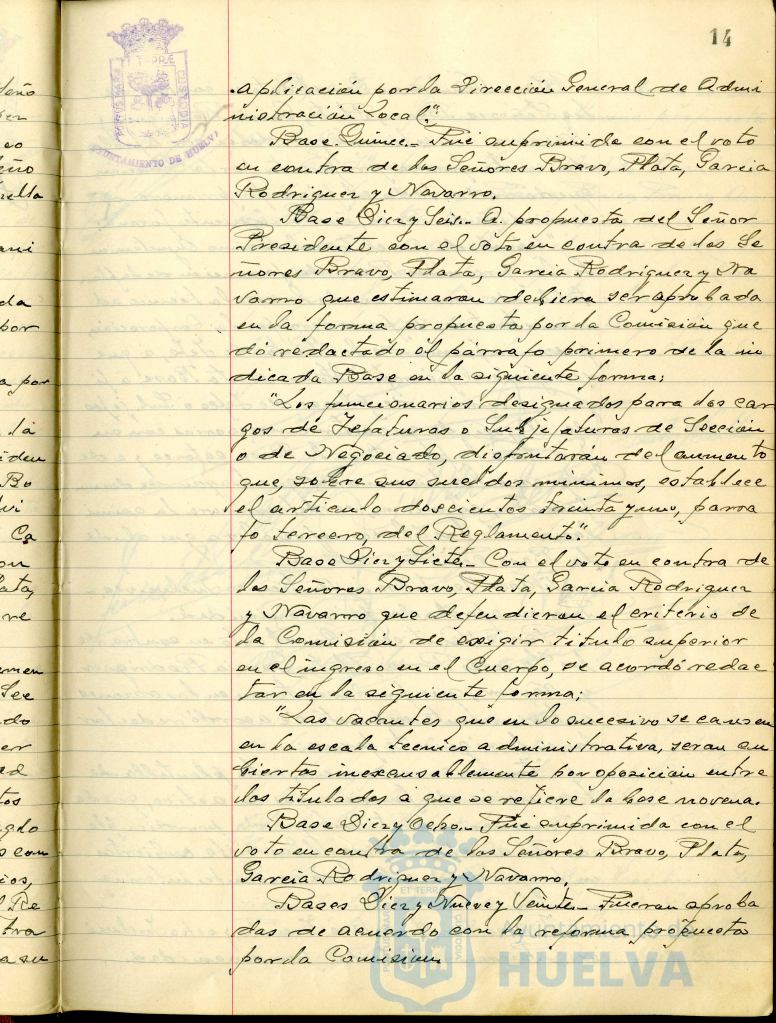 14
PORTUS MARIS ET TERRE CUSTODIA
AYUNTAMIENTO DE HUELVA
aplicación por la Dirección General de Admi
nistración Local".
Base Quince.- Fué suprimida con el voto
en contra de los Señores Bravo, Plata, Garcia
Rodriguez y Navarro.
Base Diez y Seis.- A propuesta del Señor
Presidente con el voto en contra de los Se
ñores Bravo, Plata, Garcia Rodriguez y Na
varro que estimaron debiera ser aprobada
en la forma propuesta por la Comisión que
dó redactado el párrafo primero de la in
dicada Base en la siguiente forma;
"Los funcionarios designados para los car
gos de Jefaturas o Subjefaturas de Sección
o de Negociado, disfrutarán del aumento
que, sobre sus sueldos minimos, establece
el articulo doscientos treinta y uno, parra
fo tercero, del Reglamento".
Base Diez y Siete.- Con el voto en contra de
los Señores Bravo, Plata, Garcia Rodriguez
y Navarro que defendieron el criterio de
la Comisión de exigir titulo superior
en el ingreso en el Cuerpo, se acordó redac
tar en la siguiente forma;
"Las vacantes que en lo sucesivo se causen
en la escala técnico administrativa, seran cu
biertas inexcusablemente por oposición entre
los titulados a que se refiere la base novena.
Base Diez y Ocho.- Fué suprimida con el
voto en contra de los Señores Bravo, Plata,
Garcia Rodriguez y Navarro.
Bases Diez y Nueve y Veinte.- Fueron aproba
das de acuerdo con la reforma propuesta
por la Comisión.
Ayuntamiento de
HUELVA